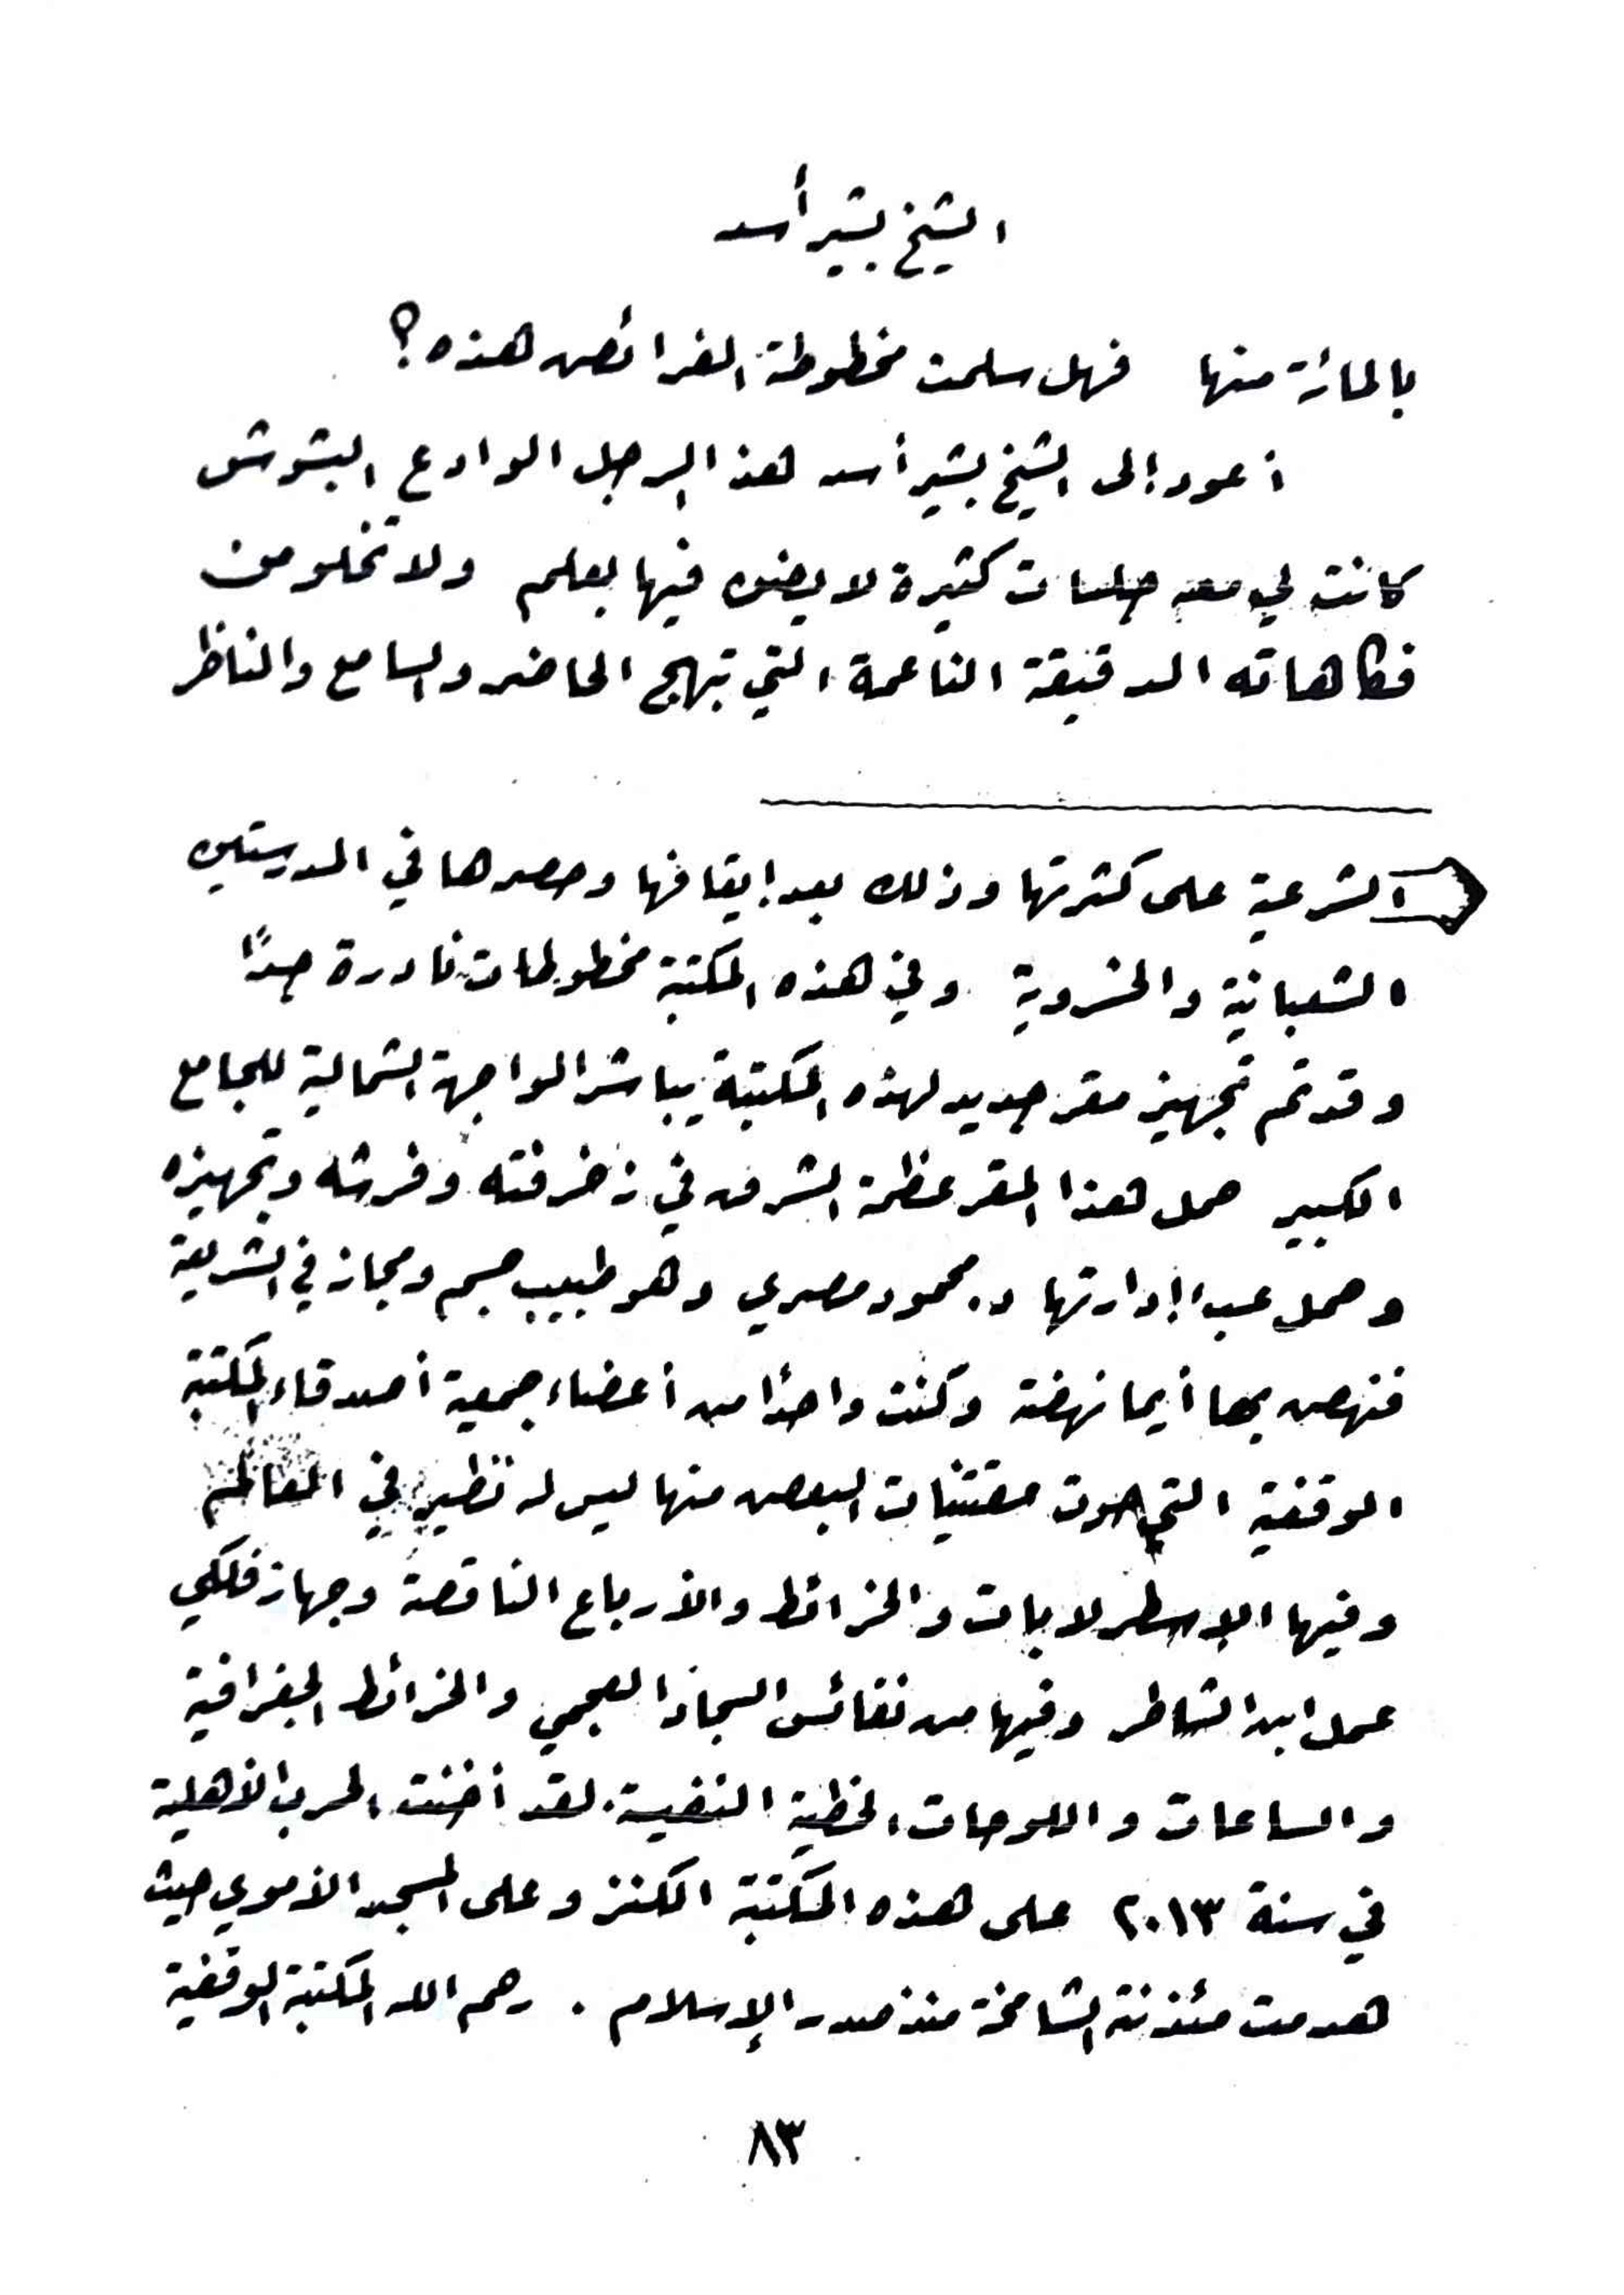 الشيخ بشير أسد
بالمائة منها فهل سلمت مخطوطة الفرائض هذه؟
أعود إلى الشيخ بشير أسد هذا الرجل الوادع البشوش
كانت لي معه جلسات كثيرة لا يضن فيها بعلم ولا تخلو من
فكاهاته الدقيقة الناعمة التي تبهج الحاضر والسامع والناظر
الشرعية على كثرتها وذلك بعد إيقافها وحصرها في المدرستين
الشعبانية والخسروية وفي هذه المكتبة مخطوطات نادرة جدًا
وقد تم تجهيز مقر جديد لهذه المكتبة يباشر الواجهة الشمالية للجامع
الكبير حمل هذا المقر عظمة الشرق في زخرفته وفرشه وتجهيزه
وحمل عبء إدارتها د. محمود مصري وهو طبيب جسم ومجاز في الشريعة
فنهض بها أيما نهضة وكنت واحدًا من أعضاء جمعية أصدقاء المكتبة
الوقفية التي حوت مقتنيات البعض منها ليس له نظير في العالم
وفيها الإسطرلابات والخرائط والأرباع الناقصة وجهاز فلكي
عمل ابن الشاطر وفيها من نفائس السجاد العجمي والخرائط الجغرافية
والساعات واللوحات الخطية النفيسة. لقد أخنت الحرب الأهلية
في سنة ٢٠١٣ على هذه المكتبة الكنز وعلى المسجد الأموي حيث
هدمت مئذنته الشامخة منذ صدر الإسلام . رحم الله المكتبة الوقفية
٨٣